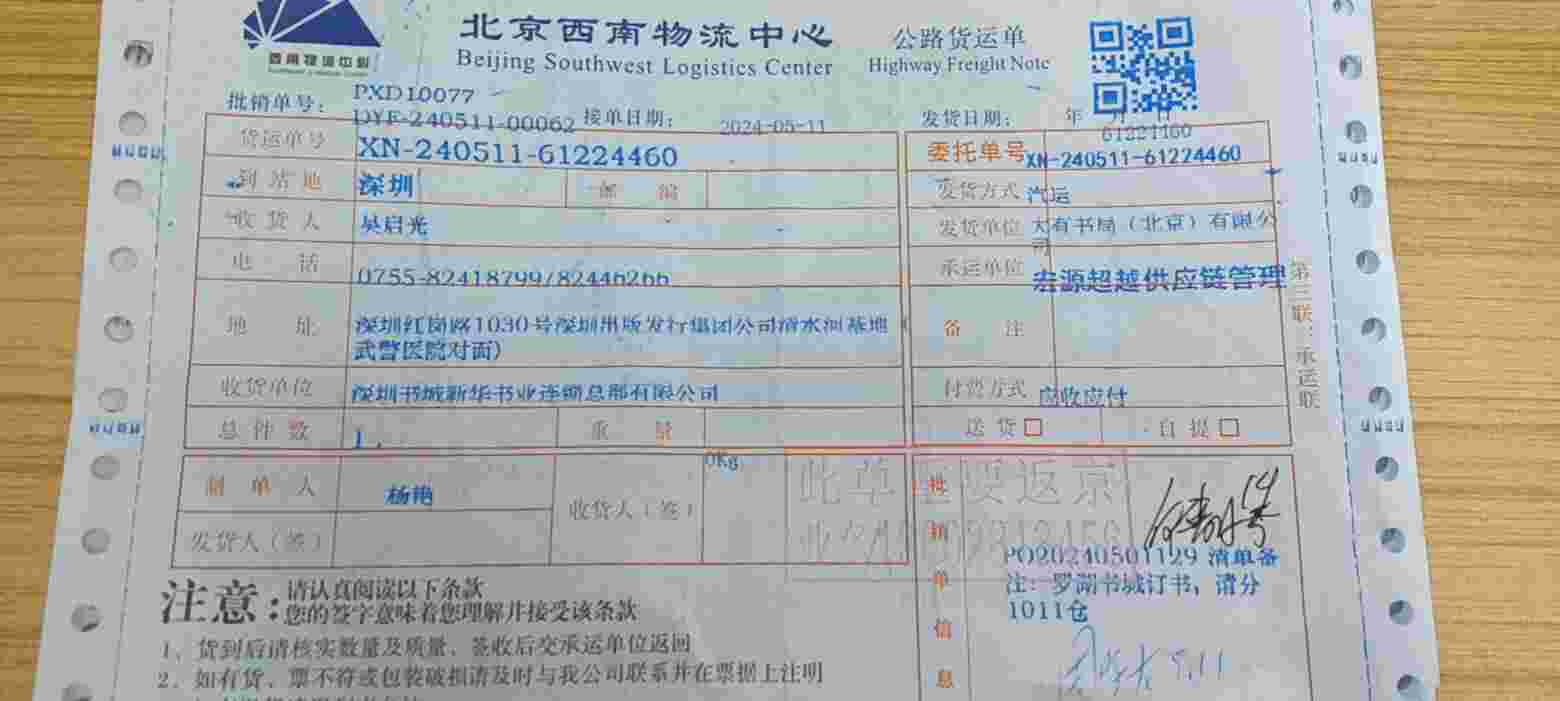 西南物流中心
北京西南物流中心
Beijing Southwest Logistics Center
公路货运单
Highway Freight Note
批销单号: PXD10077
DYF-240511-00062 接单日期: 2024-05-11 发货日期: 年 月 日
61221160
货运单号 XN-240511-61224460 委托单号 XN-240511-61224460
到站地 深圳 邮编 发货方式 汽运
收货人 吴启光 发货单位 大有书局（北京）有限公
司
电话 0755-82418799/82446266 承运单位 宏源超越供应链管理
地址 深圳红岗路1030号深圳出版发行集团公司清水河基地（ 备注
武警医院对面）
收货单位 深圳书城新华书业连锁总部有限公司 付费方式 应收应付
总件数 1 重量 送货□ 自提□
0Kg
制单人 杨艳 收货人（签）
发货人（签）
此单 要返京
批销单信息
PO20240501129 清单备
注：罗湖书城订书，请分
1011仓
5.11
第三联：承运联
注意: 请认真阅读以下条款
您的签字意味着您理解并接受该条款
1、货到后请核实数量及质量、签收后交承运单位返回
2、如有货、票不符或包装破损请及时与我公司联系并在票据上注明